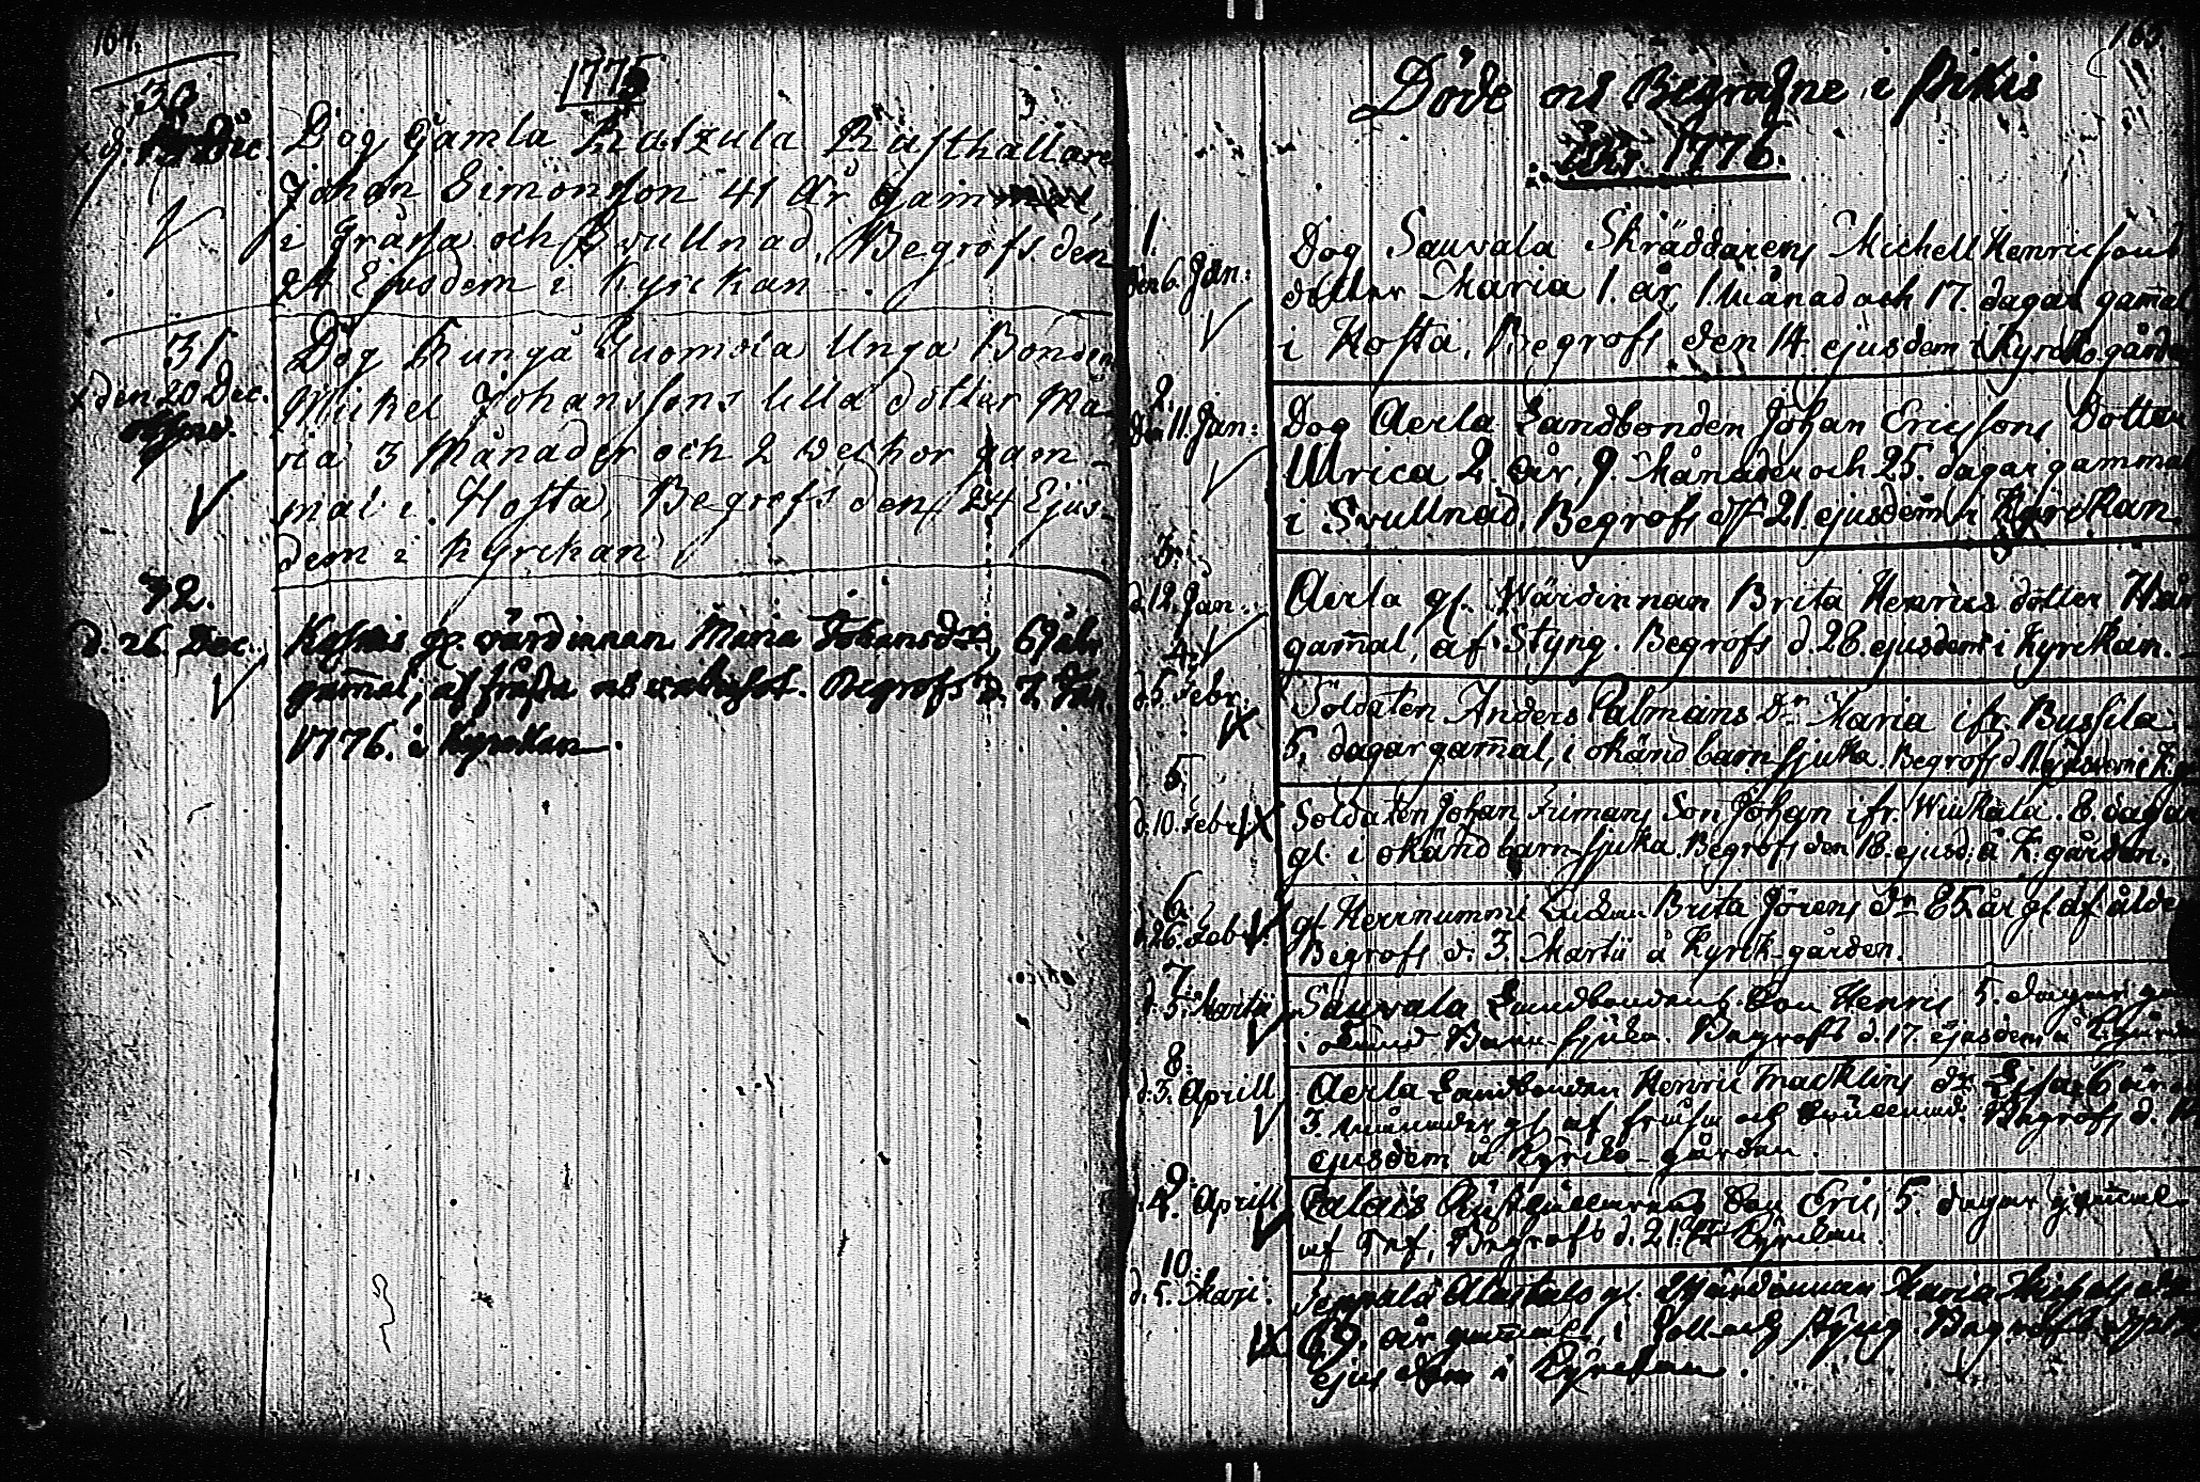 164.
1775
30
Dog gamla Rusthållare
Johan Simonsson 41 år gammal,
i Fråssa och Svullnad, Begrofs den
24 Ejusdem i Kyrckan.
31.
den 20 Dec.
Dog Runga Unga Bonden
Michel Johanssons lilla dotter Ma-
ria 3 Månader och 2 weckor gam-
mal i Hosta, Begrofs den 24 Ejus-
dem i Kyrckan
32.
d. 26. Dec.
gl. värdinnan Maria Johansdr,
gam̄al, af Begrofs d. 7. Jan.
1776. i Kyrckan.
165.
Döde och Begrafne i Pikis
åhr 1776.
1.
den 6. Jan:
Dog Sauvala Skräddarens Michell Henricssons
dotter Maria 1. år, 1. Månad och 17. dagar gam̄al
i Hosta, Begrofs den 14 ejusdem i Kyrckogården
2.
den 11. Jan:
Dog Aerla Landbonden Johan Ericssons Dotter
Ulrica 2. år, 9. Månader och 25. dagar gammal
i Svullnad, Begrofs d. 21 ejusdem i Kyrckan.
3.
d. 12. Jan:
Aerla gl. Wärdinnan Brita Henrics dotter
gam̄al, af Styng. Begrofs d. 28. ejusdem i Kyrckan.
4.
d. 5. Febr.
Soldaten Anders Palmans Dr Maria ifr. Bussila
5. dagar gam̄al, i okänd barnsjuka. Begrofs d. 11 ejusdem i K.
5.
d. 10. Febr.
Soldaten Johan Fimans Son Johan ifr. Wiukala. 8. dagar
gl. i okänd barnsjuka. Begrofs den 18. ejusd: å K:gården.
6.
d. 26. Febr.
gl. Herrnummi Enckan Brita Jörens Dr 85. år gl. af ålder
Begrofs d. 3. Martii å Kyrck-gården.
7.
d. 5. Martii
Sauvala Landbondens Son Henric 5. dagar
i okänd Barnsjuka. Begrofs d. 17. ejusdem å K:gården
8.
d. 3. Aprill
Aerla Landbonden Henric Macklins dr Lisa 6 år
3. månader gl. af fråssa och Svullnad. Begrofs d.
ejusdem å Kyrcko-gården.
9.
d. 4. Aprill
Rusthållarens Son Eric, 5. dagar gam̄al
af Begrofs d. 21. i Kyrckan.
10.
d. 5. Maji
Seppälä gl. Wärdinnan Maria
69. år gam̄al, i håll och styng. Begrofs
ejusdem i Kyrckan.